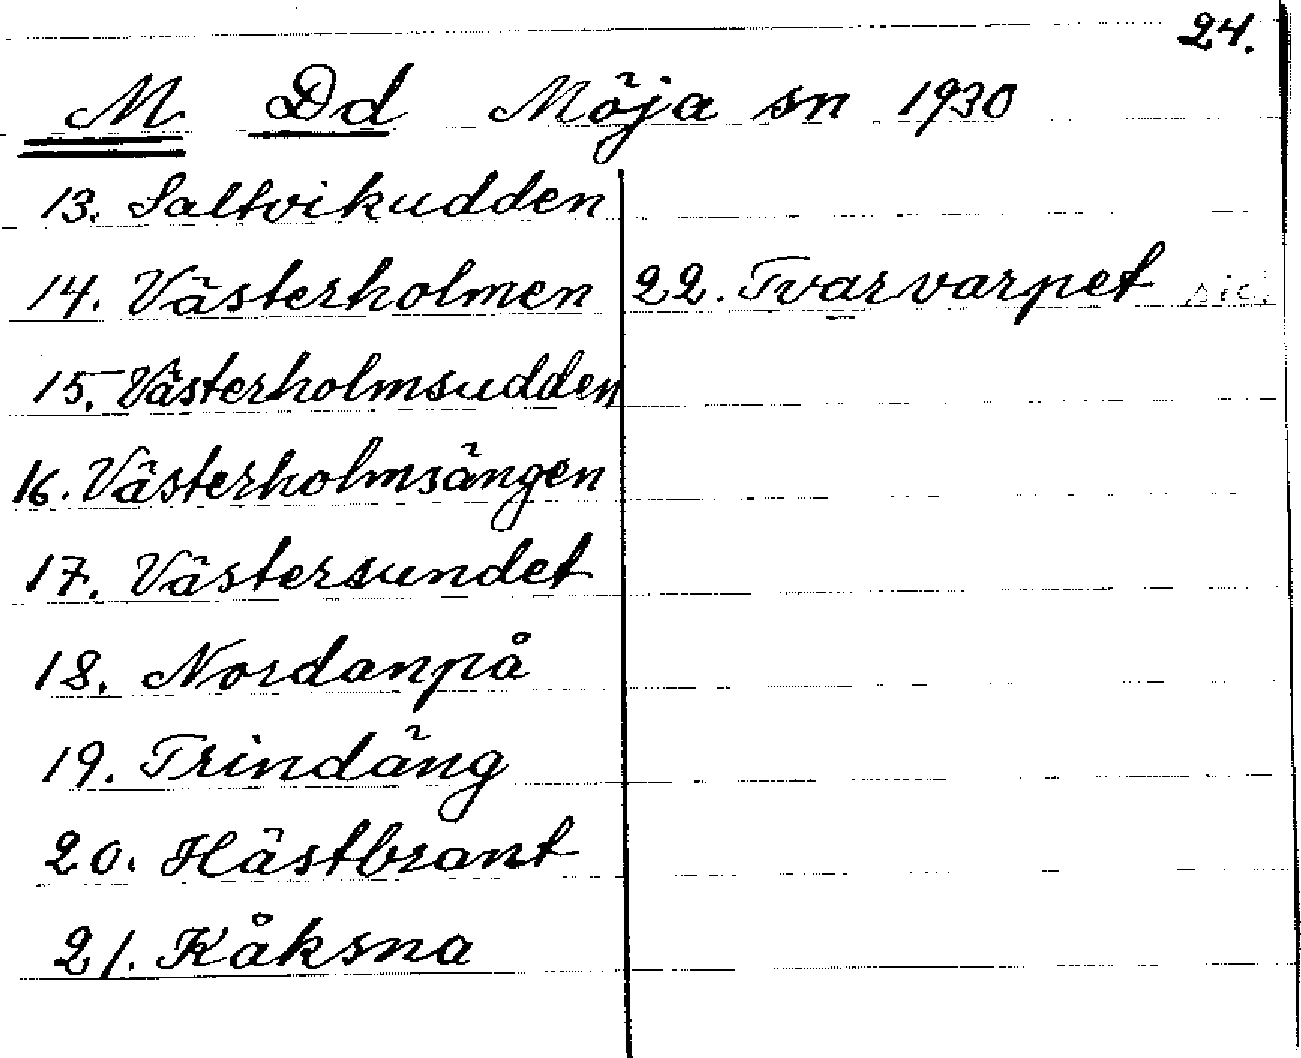 24.
M Dd Möja sn 1930
13. Saltvikudden
14. Västerholmen
15. Västerholmsudden
16. Västerholmsängen
17. Västersundet
18. Nordanpå
19. Trindäng
20. Hästbrant
21. Kåksna
22. Tvarvarpet sic!